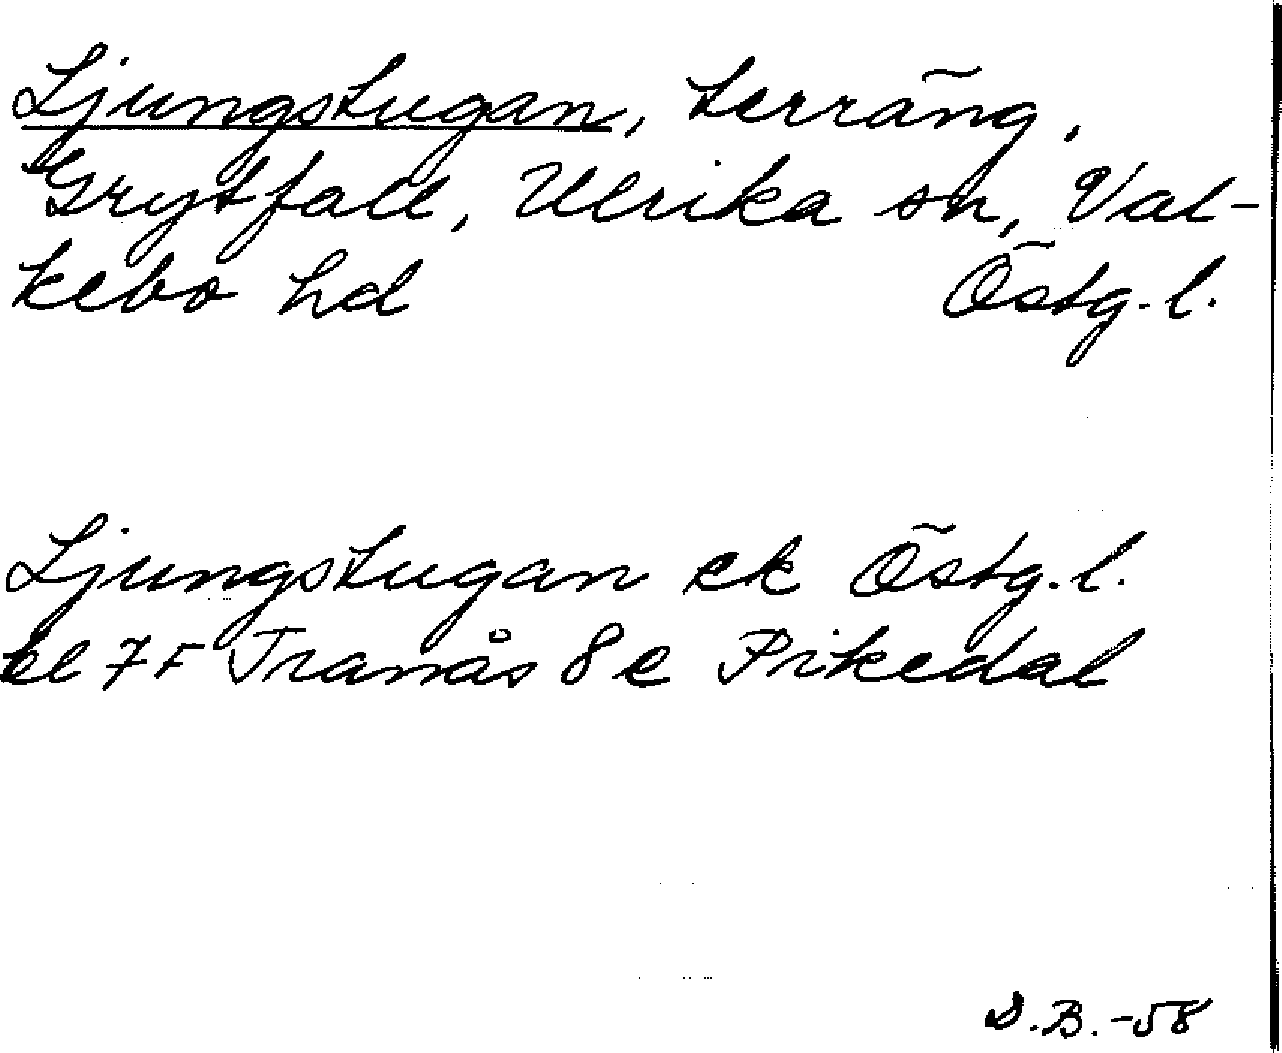 Ljungstugan, terräng,
Grytfall, Ulrika sn, Val-
kebo hd Östg. l.
Ljungstugan ek Östg. l.
bl 7F Tranås 8e Pikedal
S.B. -58